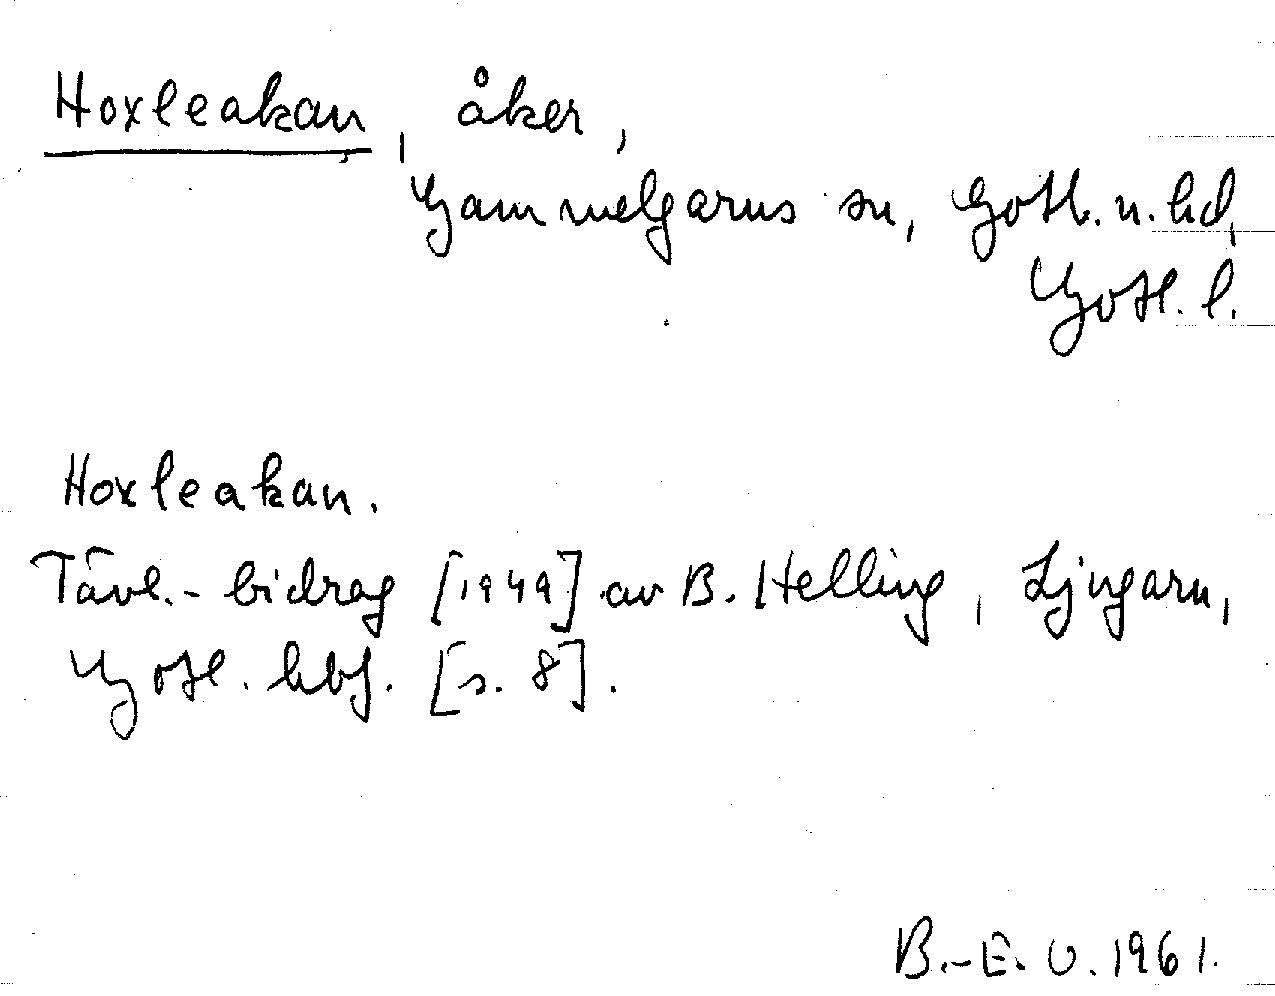 Hoxleakan, åker,
Gammelgarns sn, Gotl. n. hd,
Gotl. l.
Hoxleakan.
Tävl.-bidrag [1949] av B. Helling, Ljugarn,
Gotl. hbf. [s. 8].
B.-E. O. 1961.